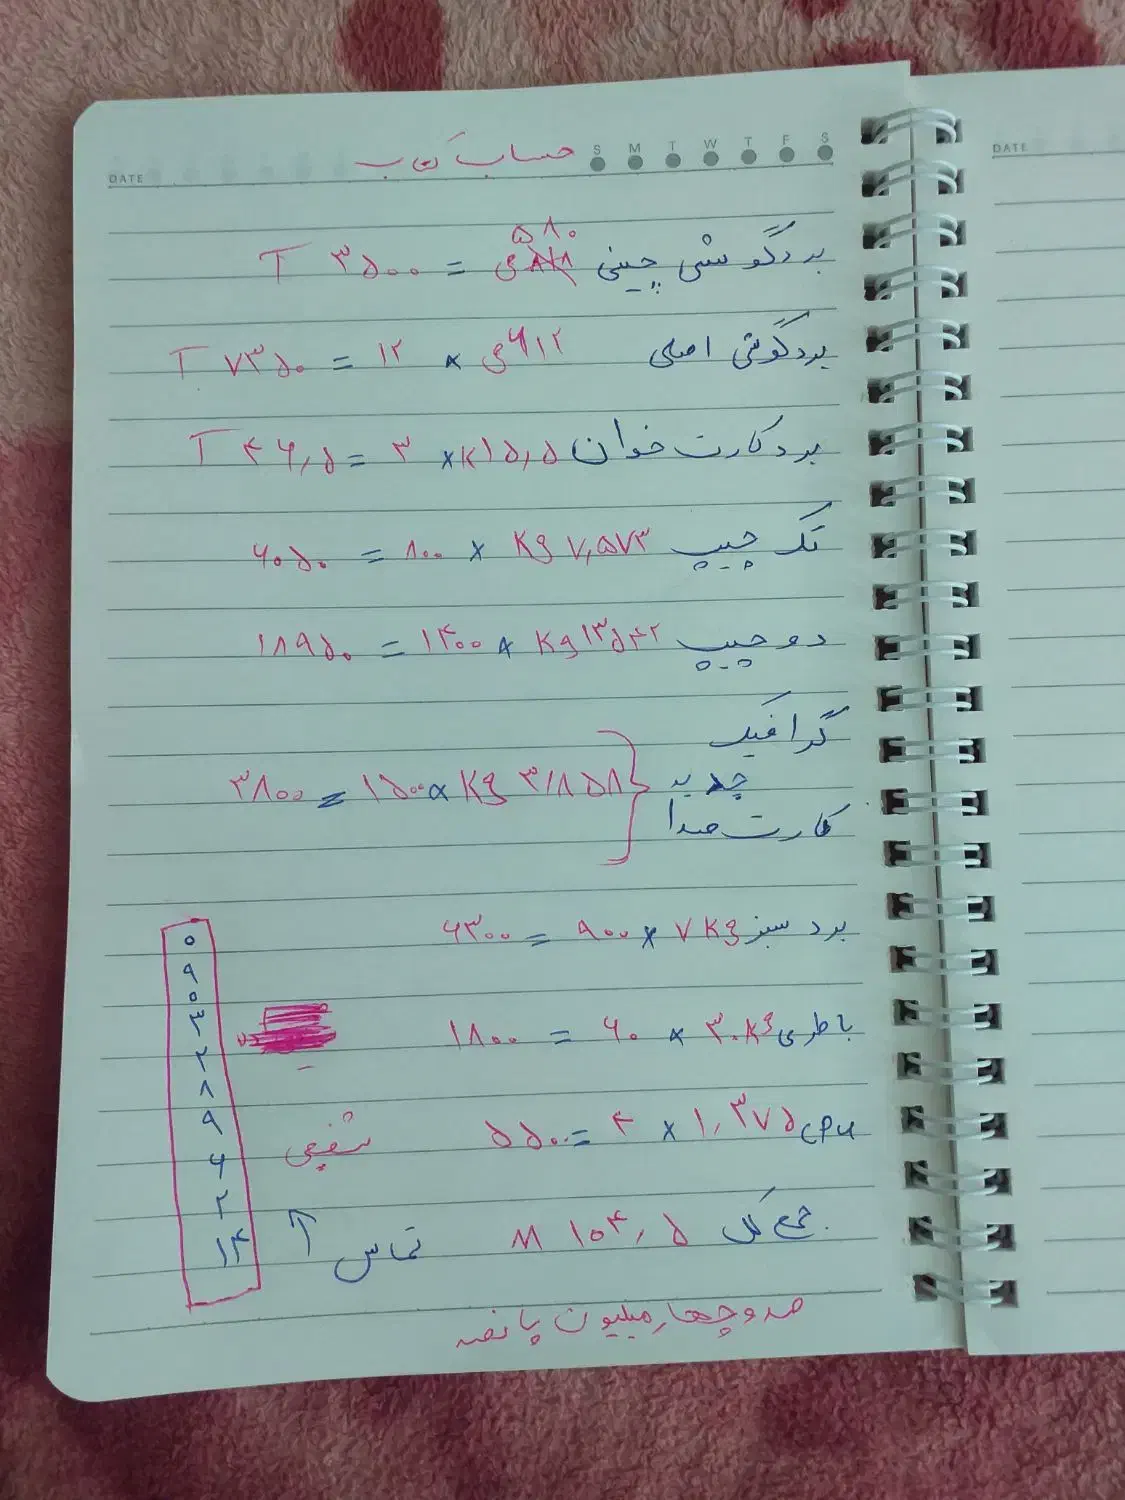 DATE
S M T W T F S
حساب
۵۸۰
برد گوشی چینی = ۳۵۰۰ T
برد گوشی اصلی ۶۱۲گ × ۱۲ = ۷۳۵۰ T
برد کارت خوان ۱۵,۵ K × ۳ = ۴۶,۵ T
تک چیپ ۷,۵۷۳ Kg × ۸۰۰ = ۶۰۵۰
دو چیپ ۱۳۵۴۲ Kg × ۱۴۰۰ = ۱۸۹۵۰
گرافیک
جدید
کارت صدا
۳/۸۵۸ Kg × ۱۵۰۰ = ۳۸۰۰
برد سبز ۷ Kg × ۹۰۰ = ۶۳۰۰
باطری ۳۰ Kg × ۶۰ = ۱۸۰۰
cpu ۱,۳۷۵ × ۴ = ۵۵۰۰
شفیعی
جمع کل ۱۰۴,۵ M
تماس ↑
۰
۹
۰
۳
۲
۸
۹
۶
۲
۱۴
صد و چهار میلیون پانصد
DATE